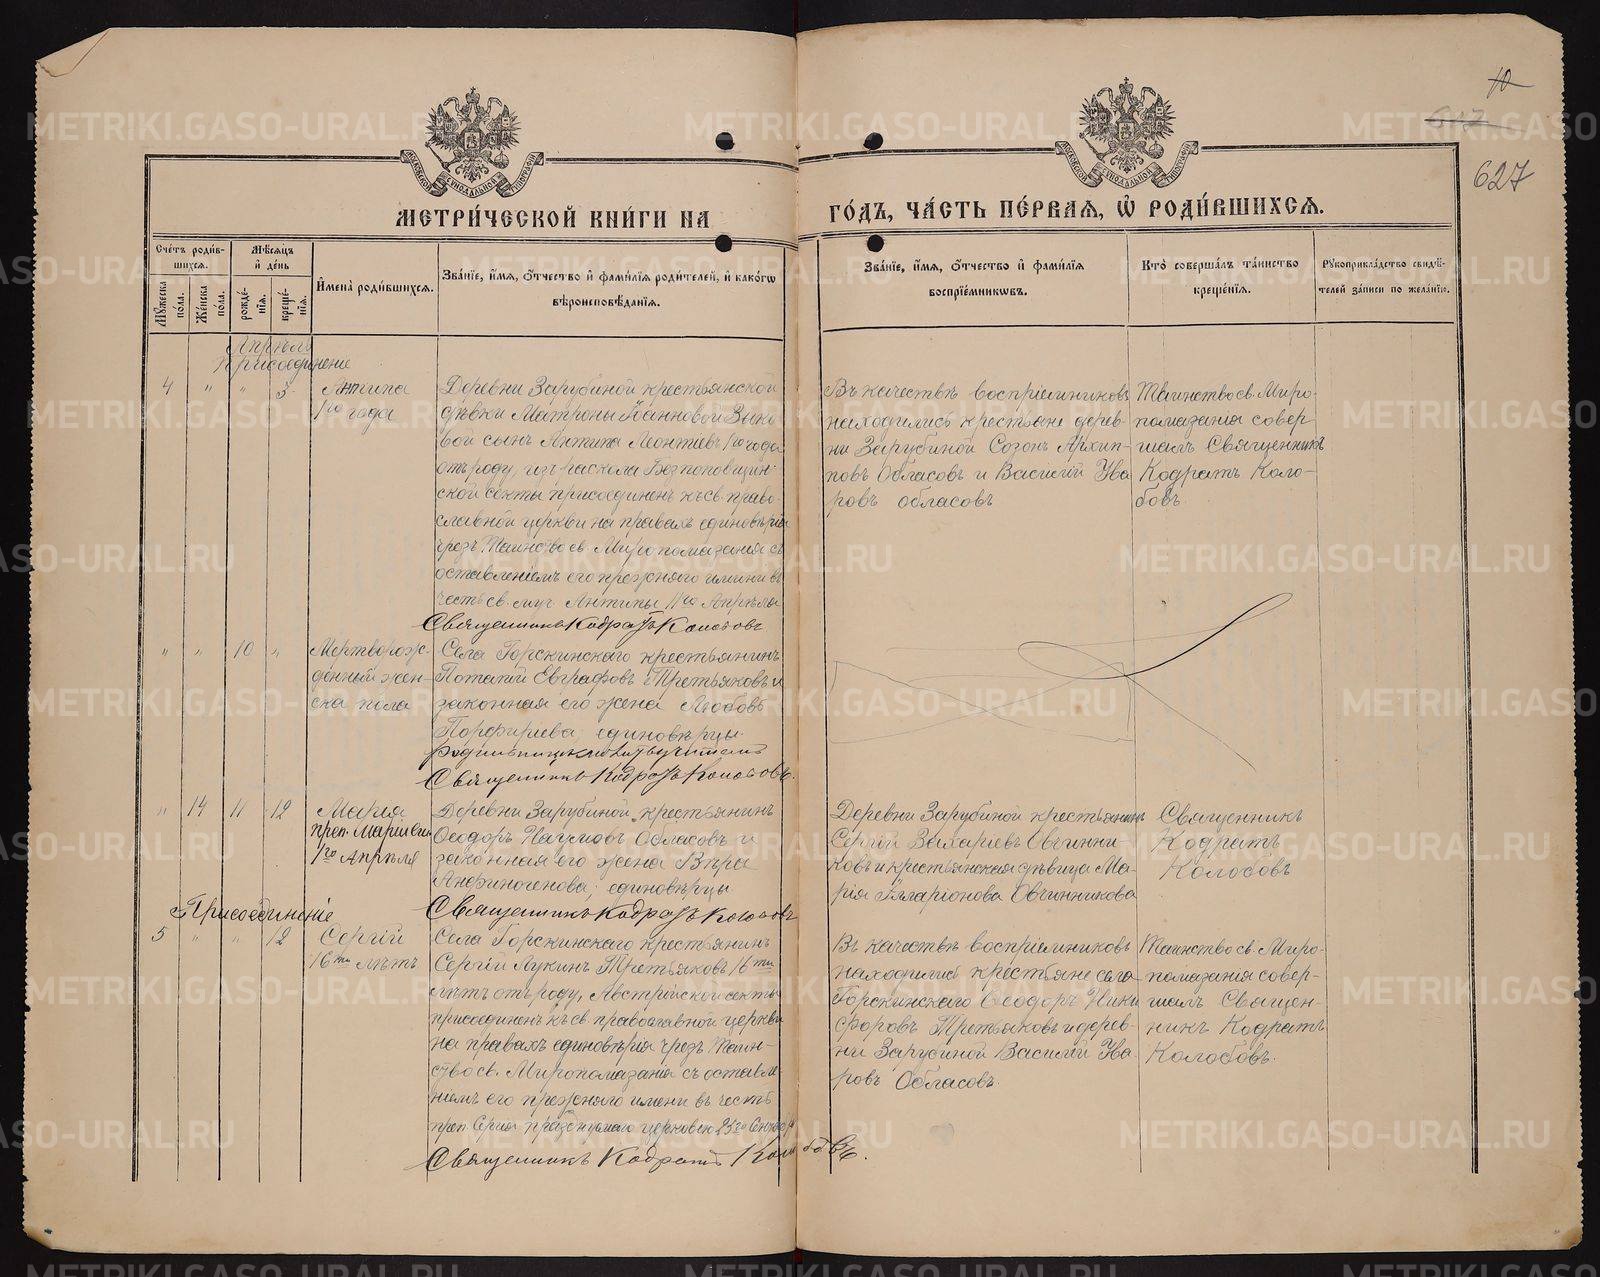 10
617
627
МЕТРИ́ЧЕСКОЙ КНИ́ГИ НА
ГО́ДЪ, ЧА́СТЬ ПЕ́РВАЯ, Ѡ҆ РОДИ́ВШИХСЯ.
Сче́тъ роди́в-
шихся.
Мѣ́сяцъ
и҆ де́нь
Мꙋ́жеска пола.
Же́нска пола.
рожде́-
нїя.
креще́-
нїя.
И҆мена̀ роди́вшихся.
Зва́нїе, и҆́мя, ѻ҆́тчество и҆ фами́лїя роди́телей, и҆ како́гѡ
вѣроисповѣ́данїя.
Зва́нїе, и҆́мя, ѻ҆́тчество и҆ фами́лїя
воспрїе́мникѡвъ.
Кто̀ соверша́лъ та́инство
креще́нїя.
Рꙋкоприкла́дство свидѣ́-
телей за́писи по жела́нїю.
Апрѣль
Присоединенie
4 " " 3
Антипа
1го года
Деревни Зарубиной крестьянской
дѣвки Матроны Iоанновой Зыко
вой сынъ Антипа Леонтiевъ 1го года
отъ роду, изъ раскола Безпоповщин-
ской секты присоединенъ къ св. право-
славной церкви на правахъ единовѣрiя
чрезъ Таинство св. Миропомазанiя съ
оставленiемъ его прежняго имени въ
честь св. муч. Антипы 11го Апрѣля
Священникъ Кодратъ Колобовъ
Въ качествѣ воспрiемниковъ
находились крестьяне дерев-
ни Зарубиной Созонъ Архип-
повъ Обласовъ и Василiй Ува
ровъ обласовъ
Таинство св. Миро-
помазания совер
шалъ Священникъ
Кодратъ Коло-
бовъ
" " 10 "
Мертворож-
денный жен-
ска пола
Села Горскинскаго крестьянинъ
Потапiй Евграфовъ Третьяковъ и
законная его жена Любовь
Порфирьева, единовѣрцы
Священникъ Кодратъ Колобовъ
" 14 11 12
Марiя
преп. Марiи Еги
1го Апрѣля
Деревни Зарубиной крестьянинъ
Ѳеодоръ Наумовъ Обласовъ и
законная его жена Вѣра
Анфиногенова; единовѣрцы
Священникъ Кодратъ Колобовъ
Деревни Зарубиной крестьянинъ
Сергiй Захарiевъ Овчинни
ковъ и крестьянская дѣвица Ма-
рiя Иларiонова Овчинникова
Священникъ
Кодратъ
Колобовъ
Присоединенiе
5 " " 12
Сергiй
16ти лѣтъ
Села Горскинскаго крестьянинъ
Сергiй Лукинъ Третьяковъ 16ти
лѣтъ отъ роду, Австрiйской секты
присоединенъ къ св. православной церкви
на правахъ единовѣрiя чрезъ Таин-
ство св. Миропомазанiя съ оставле
нiемъ его прежняго имени въ честь
преп. Сергiя празднуемаго церковiю 25го Сентяб
Священникъ Кодратъ Колобовъ.
Въ качествѣ воспрiемниковъ
находились крестьяне села
Горскинскаго Ѳеодоръ Ники
форовъ Третьяковъ и дерев-
ни Зарубиной Василiй Ува
ровъ Обласовъ.
Таинство св. Миро-
помазания совер-
шалъ Священ-
никъ Кодратъ
Колобовъ.